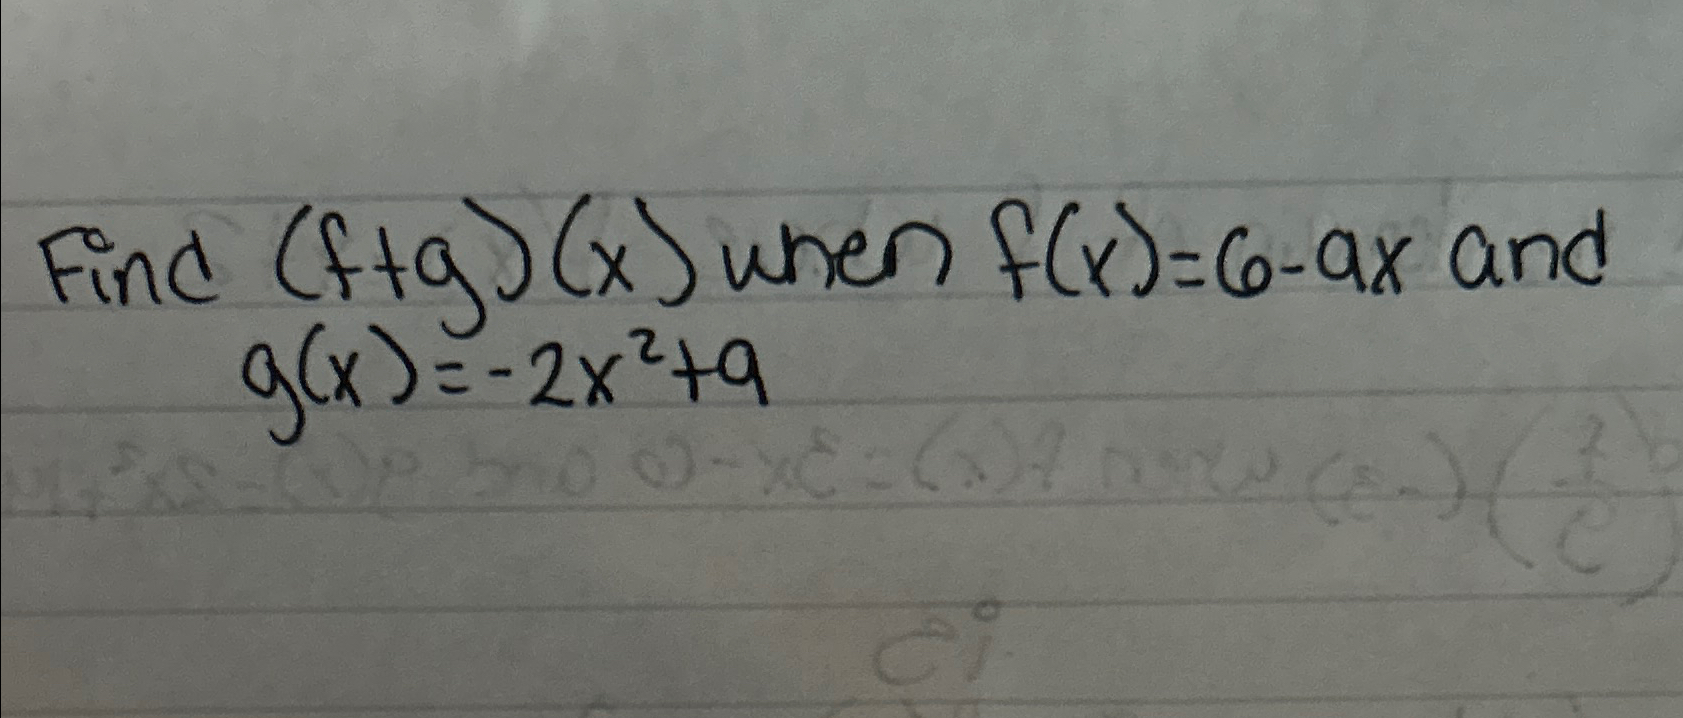 Find (f+g)(x) when f(x)=6-9x and
g(x)=-2x²+9